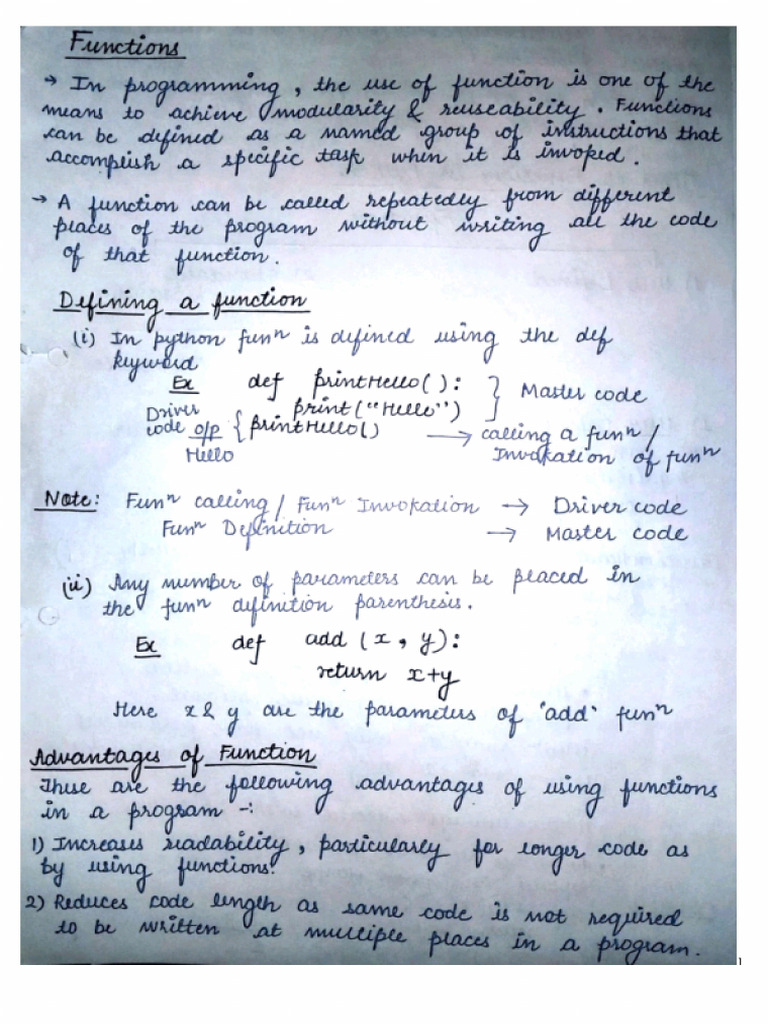 Functions
→ In programming, the use of function is one of the
means to achieve modularity & reuseability. Functions
can be defined as a named group of instructions that
accomplish a specific task when it is invoked.
→ A function can be called repeatedly from different
places of the program without writing all the code
of that function.
Defining a function
(i) In python funⁿ is defined using the def
keyword
Ex def printHello():
print("Hello") } Master code
Driver code { printHello() → calling a funⁿ /
Invokation of funⁿ
o/p
Hello
Note: Funⁿ calling / Funⁿ Invokation → Driver code
Funⁿ Definition → Master code
(ii) Any number of parameters can be placed in
the funⁿ definition parenthesis.
Ex def add (x, y):
return x+y
Here x & y are the parameters of 'add' funⁿ
Advantages of Function
These are the following advantages of using functions
in a program -:
1) Increases readability, particularly for longer code as
by using functions.
2) Reduces code length as same code is not required
to be written at multiple places in a program.
1